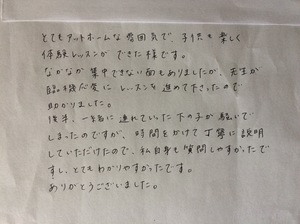 とてもアットホームな雰囲気で、子供も楽しく
体験レッスンができた様です。
なかなか集中できない面もありましたが、先生が
臨機応変にレッスンを進めて下さったので
助かりました。
後半、一緒に連れていた下の子が騒いで
しまったのですが、時間をかけて丁寧に説明
していただけたので、私自身も質問しやすかったで
すし、とてもわかりやすかったです。
ありがとうございました。